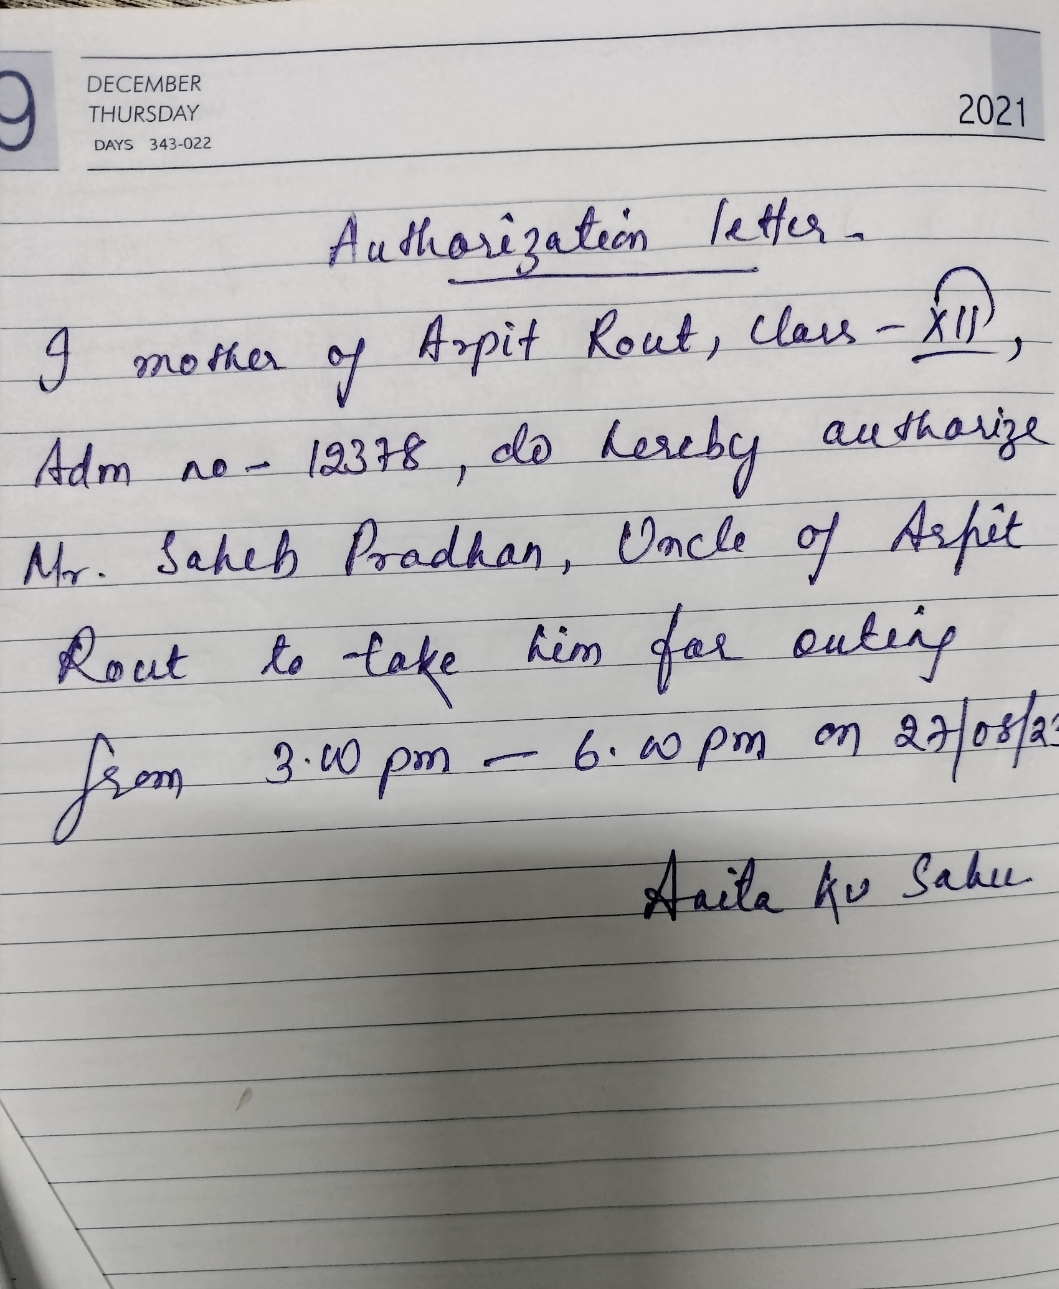 9
DECEMBER
THURSDAY
DAYS 343-022
2021
Authorization letter.
I mother of Arpit Rout, Class - XII,
Adm no - 12378, do hereby authorize
Mr. Saheb Pradhan, Uncle of Arpit
Rout to take him for outing
from 3.00 pm — 6.00 pm on 27/08/23
Anita Ku Sahu